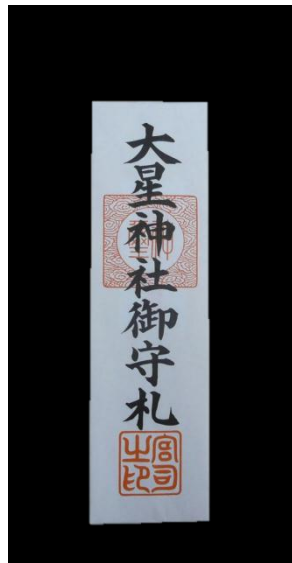 大星神社御守札
宮司
之印